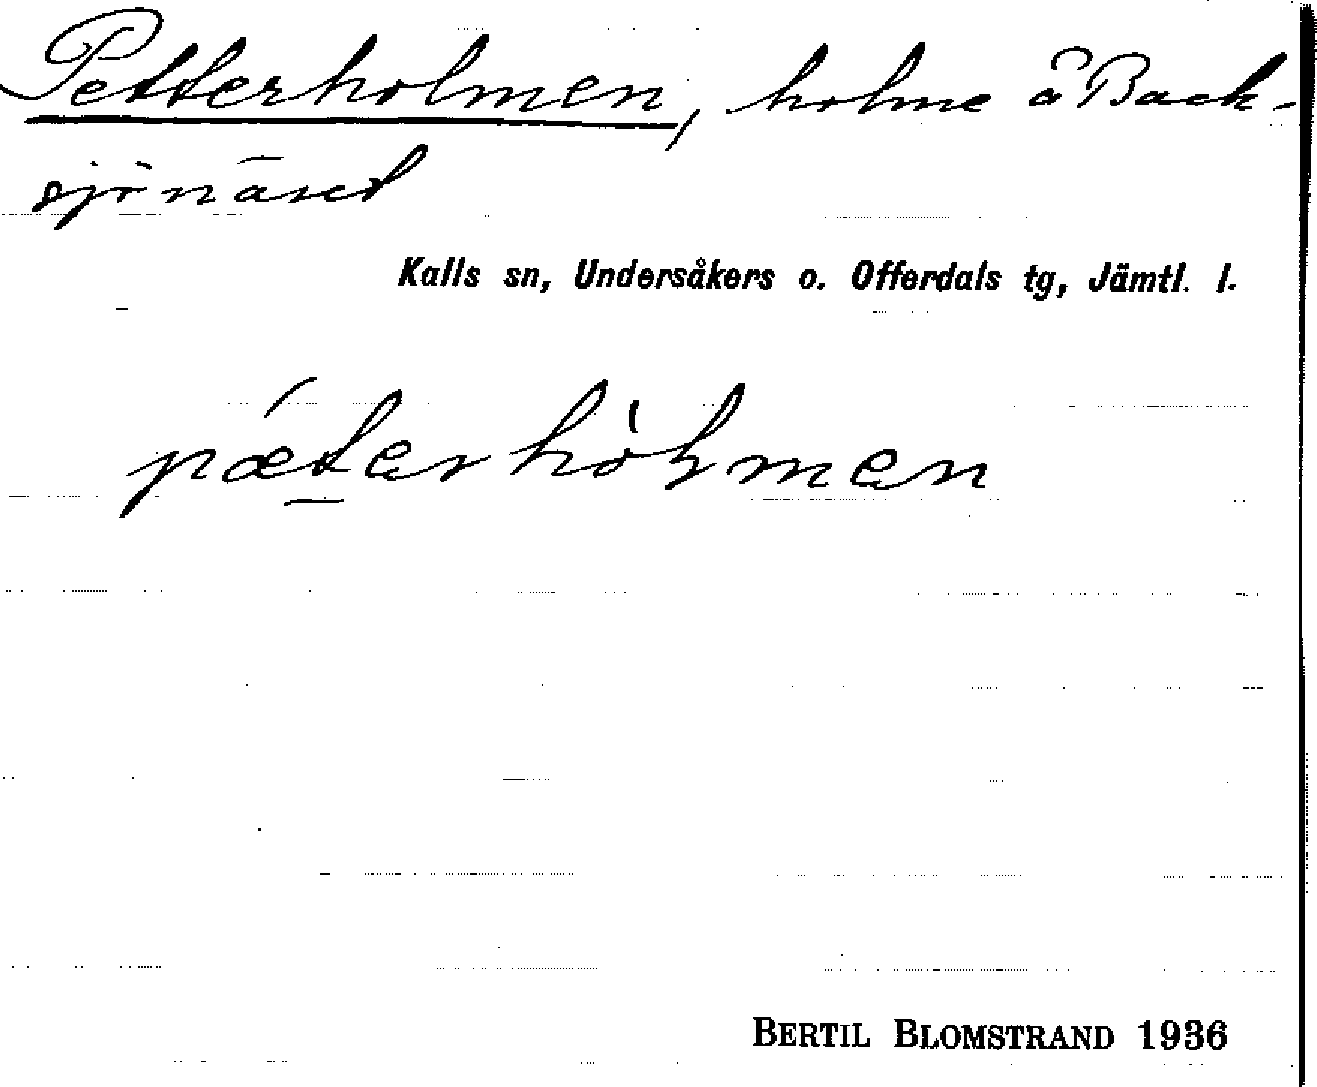 Petterholmen, holme å Back-
sjönäset
Kalls sn, Undersåkers o. Offerdals tg, Jämtl. l.
pǽtərhòɫmən
BERTIL BLOMSTRAND 1936